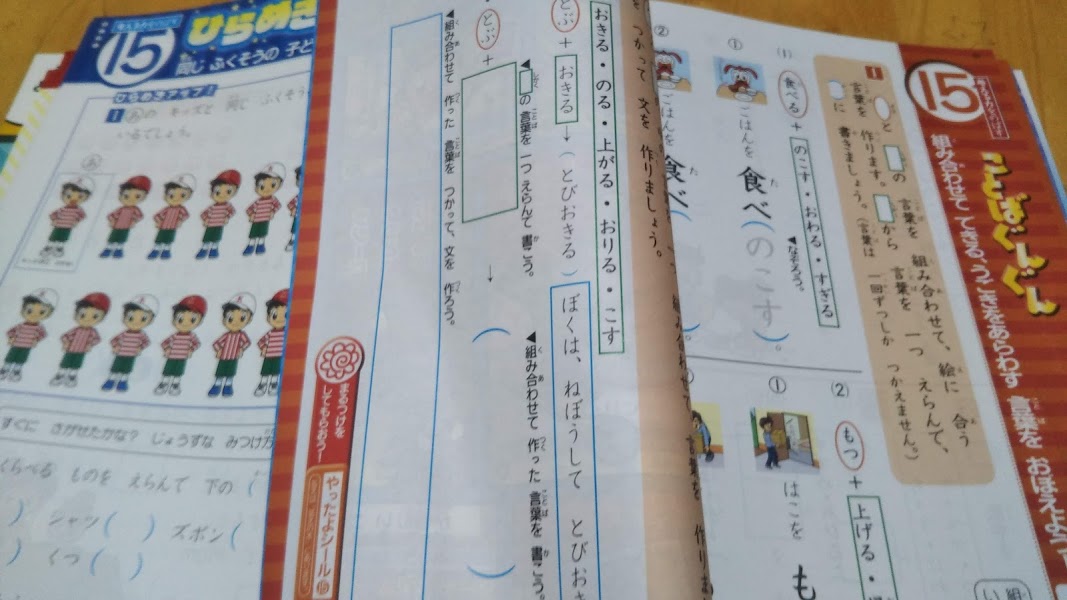 15
ことばぐんぐん
組み合わせて できる、うごきをあらわす 言葉を おぼえよう
1
と の 言葉を 組み合わせて、絵に 合う
言葉を 作ります。 から 言葉を 一つ えらんで、
に 書きましょう。(言葉は 一回ずつしか つかえません。)
(1)
食べる + のこす・おわる・すぎる
▼なぞろう。
① ごはんを 食べ(のこす)。
② ごはんを 食べ(
②
もつ + 上げる・
① はこを も
つかって 文を 作りましょう。
おきる・のる・上がる・おりる・こす
とぶ + おきる → (とびおきる)
ぼくは、ねぼうして とびおき
▼組み合わせて 作った 言葉を 書こう。
▼ の 言葉を 一つ えらんで 書こう。
とぶ + → (
▼組み合わせて 作った 言葉を つかって、文を 作ろう。
まるつけを
してもらおう!
やったよシール
15
ひらめき
同じ ふくそうの 子ど
ひらめきアップ!
1 あの キッズと 同じ ふくそう
いるでしょう。
あ
すぐに さがせたかな? じょうずな みつけ方
くらべる ものを えらんで 下の (
) シャツ( ) ズボン(
) くつ( )